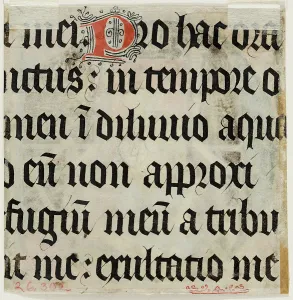 t mei Pro hac ora
nctus : in tempore o
men ī diluuio aqua
eū non approxi
fugiū meū a tribu
it me : exultatio me